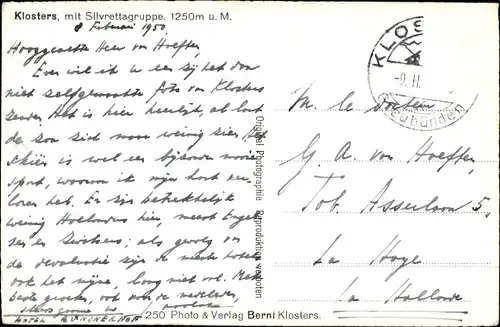 Klosters, mit Silvrettagruppe. 1250m ü. M.
8 Februari 1950
Hooggeachte Heer van Hoeften,
Even wil ik U een zij het dan
niet zelfgemaakte foto van Klosters
zenden. Het is hier heerlijk, al laat
de zon zich maar weinig zien, het
skiën is wel een bijzonder mooie
sport, waaraan ik mijn hart
loren heb. Er zijn betrekkelijk
weinig Hollanders hier, meest Engel
sen en Zwitsers; als gevolg van
de devaluatie zijn de meeste hotels
ook het mijne, lang niet vol. Met
beste groeten, ook van de
HOTEL
Original Photographie Reproduktion verboten
KLOS
-9. II.
Graubünden
M. le Docteur
G A. van Hoeften,
Tob. Asserlaan 5,
La Haye
La Hollande
250 Photo & Verlag Berni Klosters.